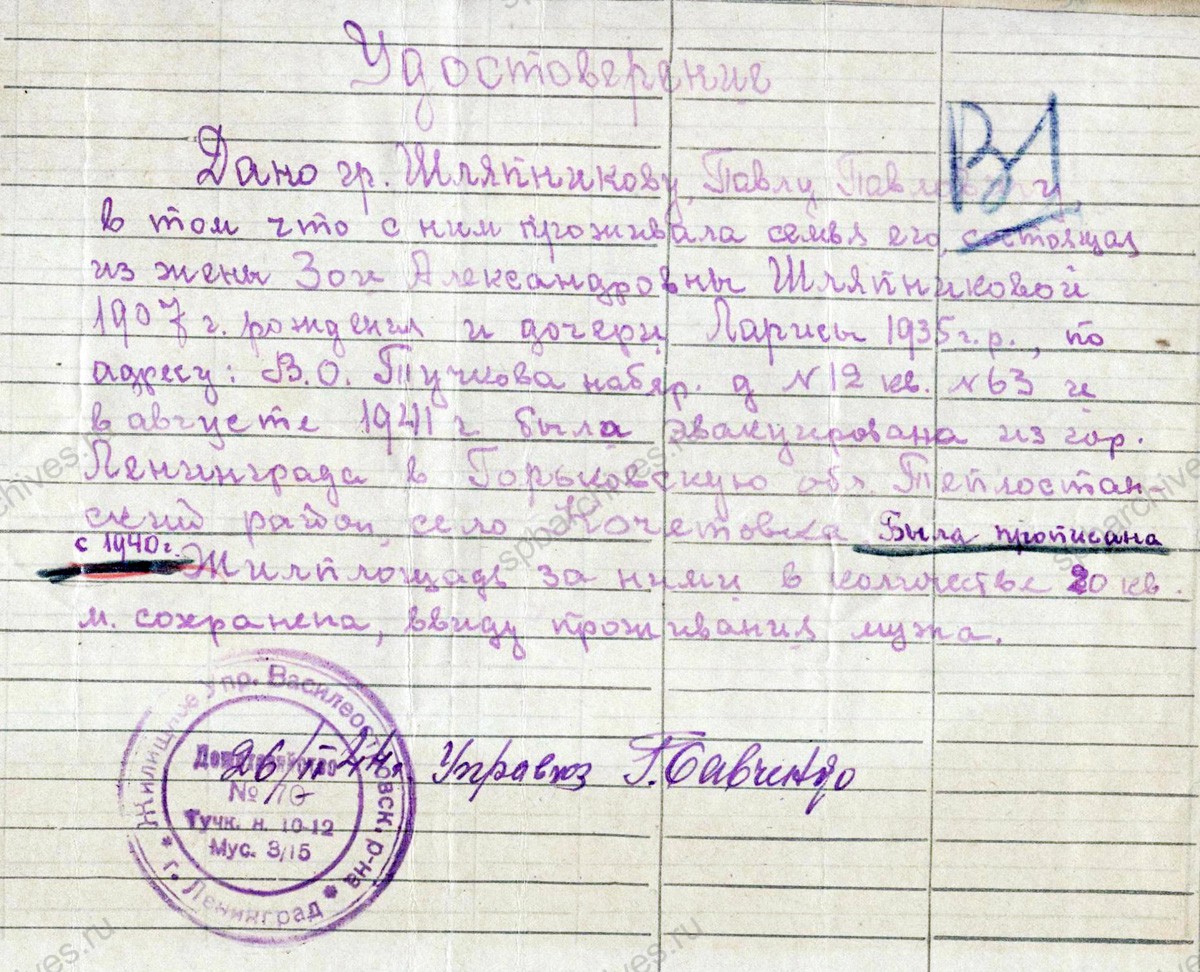 Удостоверение
Дано гр. Шляпникову, Павлу Павловичу
В1
в том что с ним проживала семья его, состоящая
из жены Зои Александровны Шляпниковой
1907 г. рождения и дочери Ларисы 1935 г. р., по
адресу: В.О. Тучкова набер. д N 12 кв. N 63 и
в августе 1941 г. была эвакуирована из гор.
Ленинграда в Горьковскую обл. Теплостан-
ский район, село Кочетовка. Была прописана
с 1940 г. Жилплощадь за ними в количестве 20 кв.
м. сохранена, ввиду проживания мужа.
26/II 44. Управхоз Г. Савченко
Жилищное Упр. Василеостровск. р-на
Домохозяйство
№ 10
Тучк. н. 10-12
Мус. 3/15
г. Ленинград
spbarchives.ru